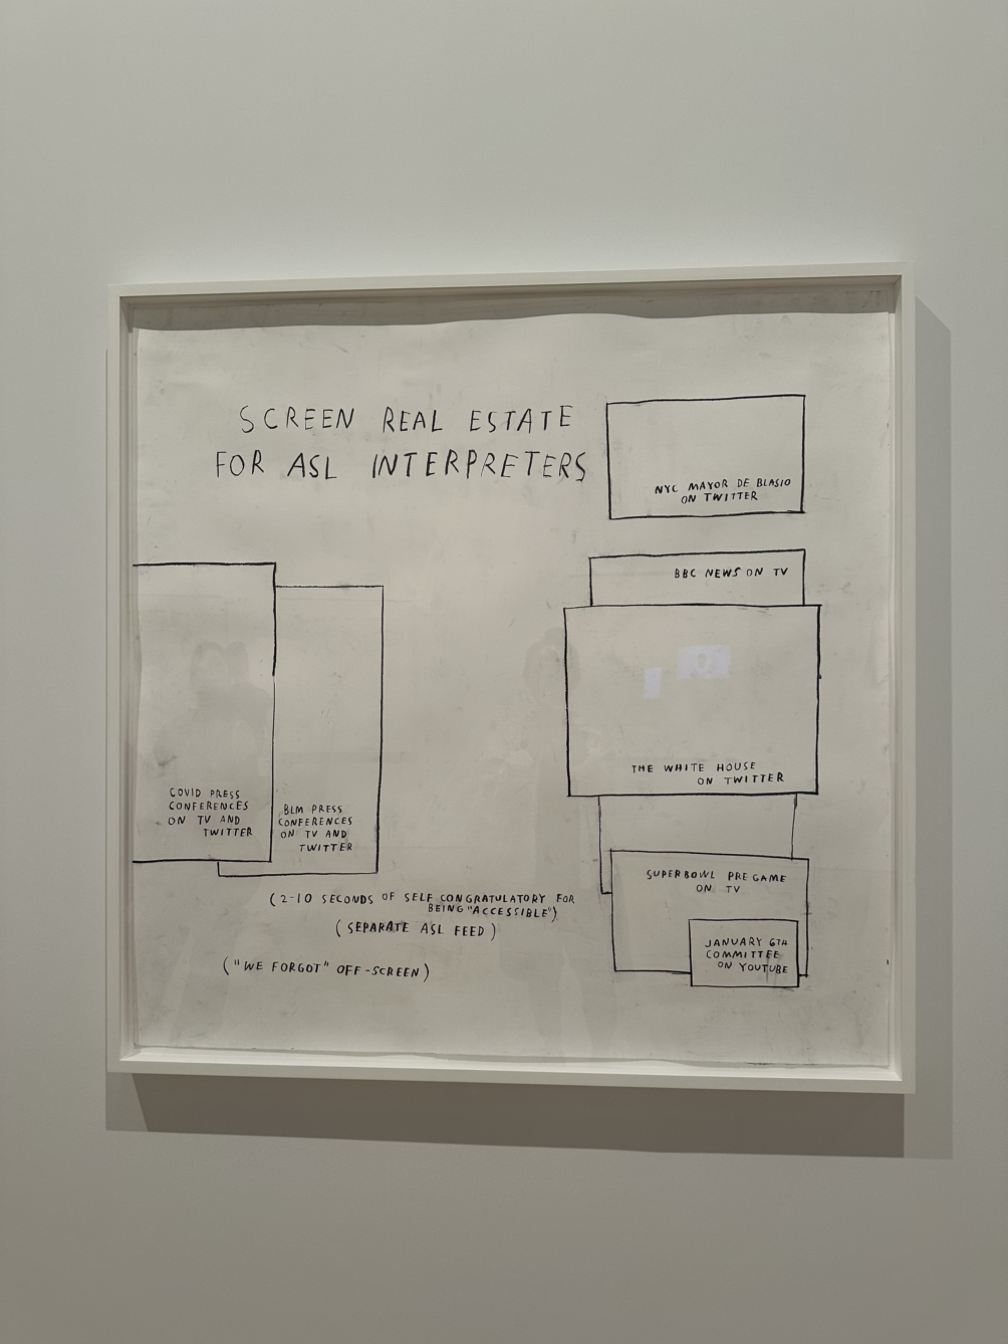 SCREEN REAL ESTATE
FOR ASL INTERPRETERS
NYC MAYOR DE BLASIO
ON TWITTER
BBC NEWS ON TV
THE WHITE HOUSE
ON TWITTER
COVID PRESS
CONFERENCES
ON TV AND
TWITTER
BLM PRESS
CONFERENCES
ON TV AND
TWITTER
SUPERBOWL PREGAME
ON TV
JANUARY 6TH
COMMITTEE
ON YOUTUBE
(2-10 SECONDS OF SELF CONGRATULATORY FOR
BEING "ACCESSIBLE")
(SEPARATE ASL FEED)
("WE FORGOT" OFF-SCREEN)